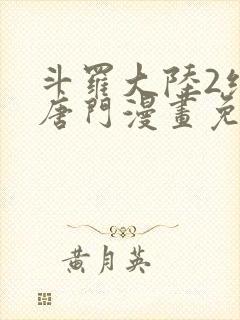 斗羅大陸2
唐門漫畫免
黃月英